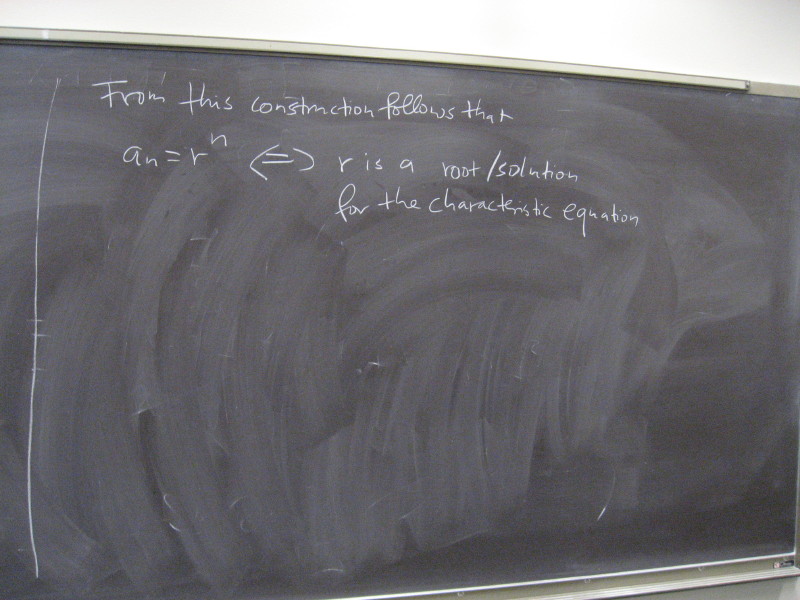 From this construction follows that
aₙ = rⁿ ⟺ r is a root/solution
for the characteristic equation